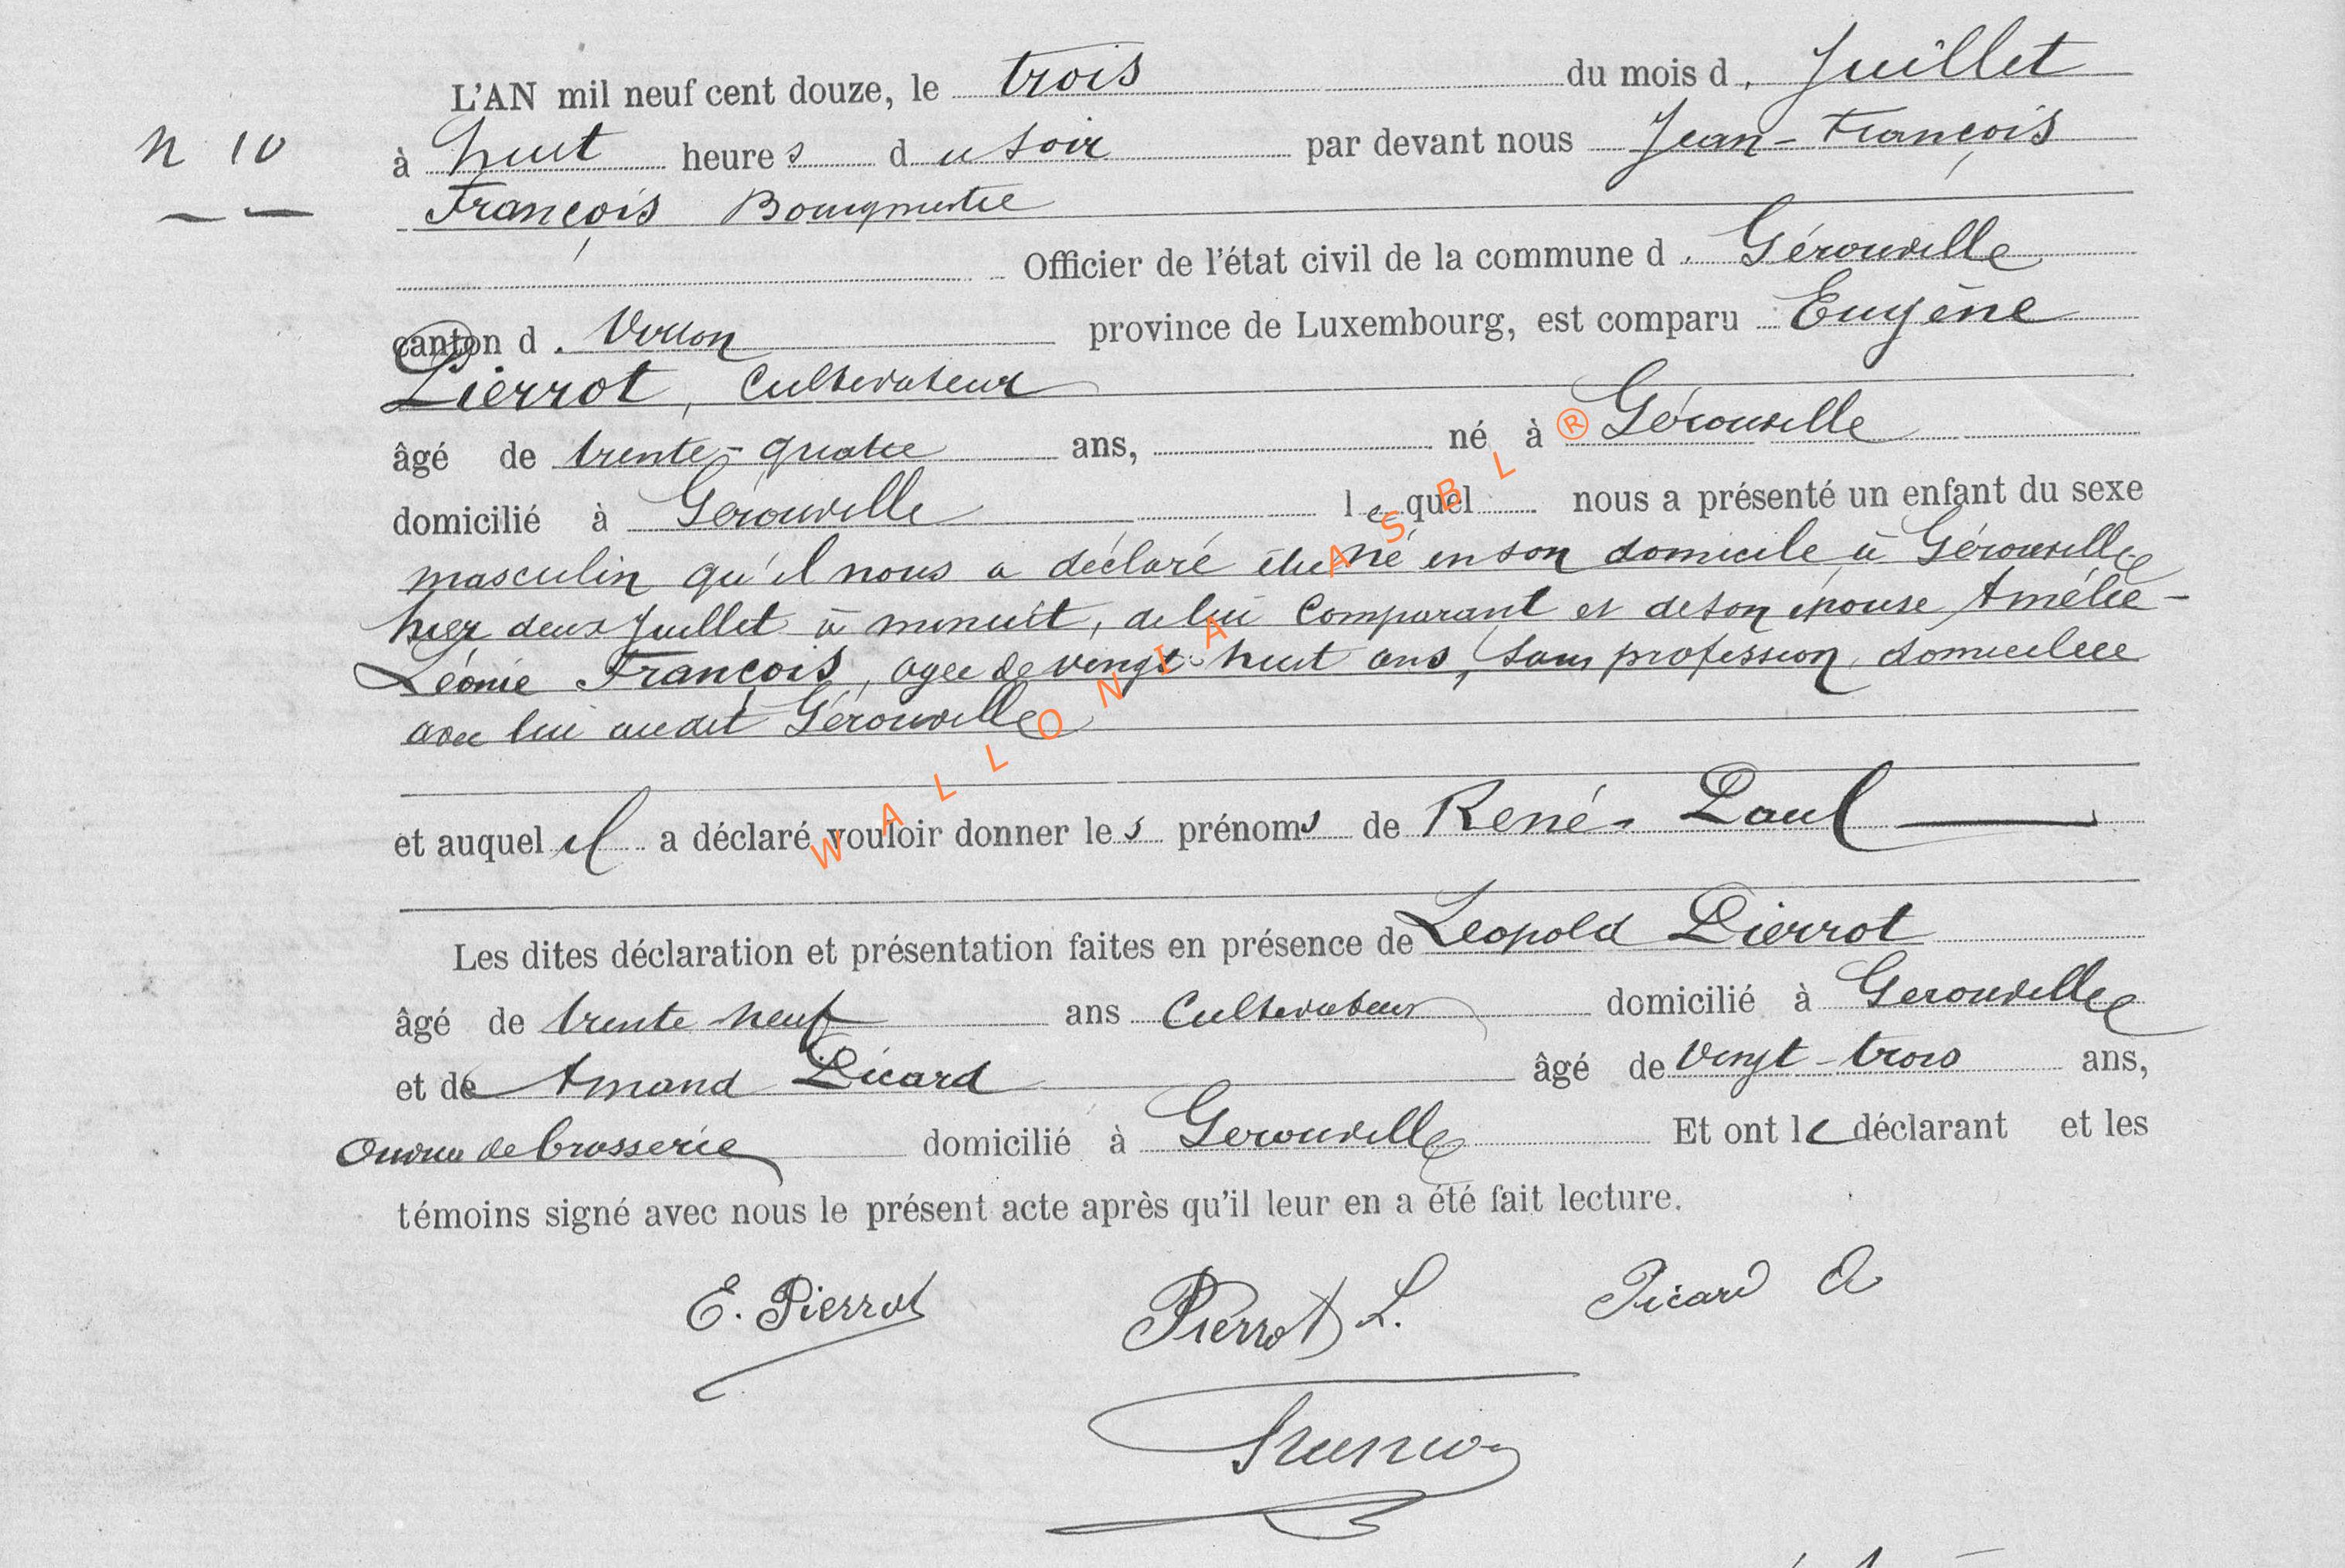 L'AN mil neuf cent douze, le trois du mois d. Juillet
N 10
à huit heures du soir par devant nous Jean-François
François Bourgmestre
Officier de l'état civil de la commune d. Gérouville
canton d. Virton province de Luxembourg, est comparu Eugène
Pierrot, Cultivateur
âgé de trente-quatre ans, né à Gérouville
domicilié à Gérouville lequel nous a présenté un enfant du sexe
masculin qu'il nous a déclaré être né en son domicile à Gérouville
hier deux Juillet à minuit, de lui Comparant et de son épouse Amélie-
Léonie François, agée de vingt-huit ans, sans profession, domiciliée
avec lui audit Gérouville
et auquel il a déclaré vouloir donner les prénoms de René-Paul
Les dites déclaration et présentation faites en présence de Leopold Pierrot
âgé de trente neuf ans Cultivateur domicilié à Gerouville
et de Amand Picard âgé de vingt-trois ans,
Ouvrier de brasserie domicilié à Gerouville Et ont le déclarant et les
témoins signé avec nous le présent acte après qu'il leur en a été fait lecture.
E. Pierrot Pierrot L. Picard A
WALLONIA ASBL ®